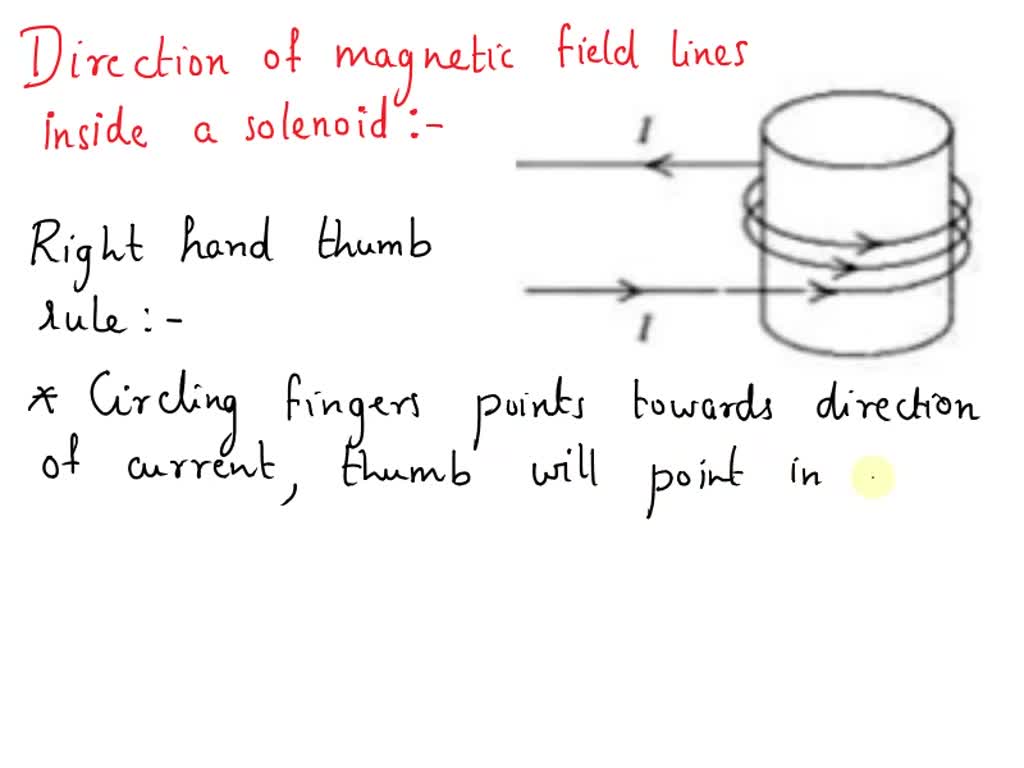 Direction of magnetic field lines
inside a solenoid :-
I
Right hand thumb
rule : -
I
* Circling fingers points towards direction
of current, thumb will point in